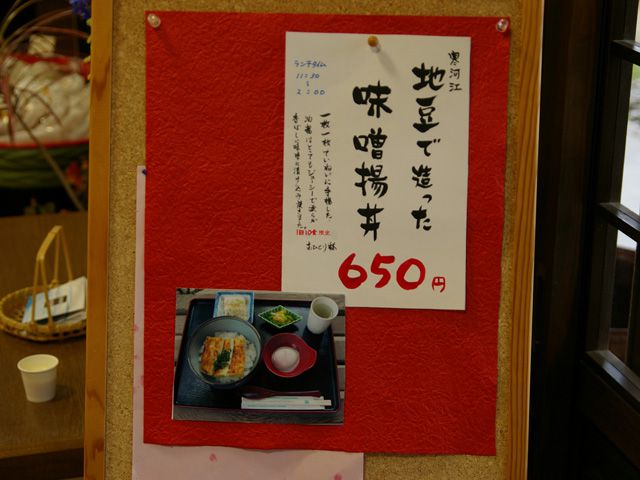 寒河江
地豆で造った
味噌揚丼
650円
ランチタイム
11:30
〜
2:00
一枚一枚ていねいに手揚した
油揚はとてもジューシーで柔らか
香ばしい味噌に漬け込み焼きました。
1日10食限定
おひとり様